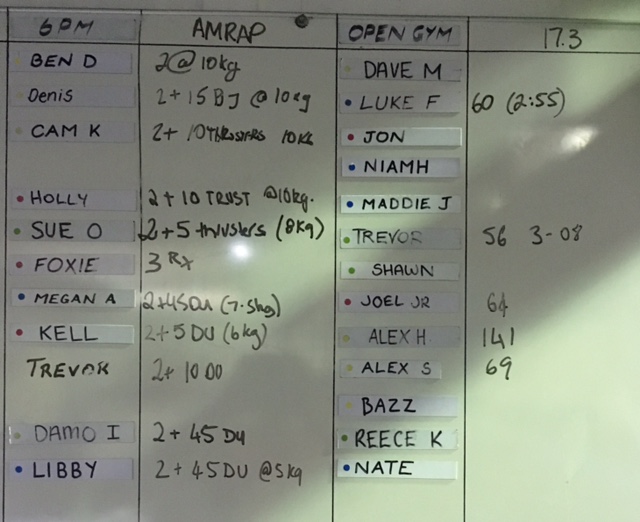 6PM AMRAP OPEN GYM 17.3
BEN D 2@10kg DAVE M
Denis 2+15BJ @10kg LUKE F 60 (2:55)
CAM K 2+ 10 THRUSTERS 10KG JON
NIAMH
HOLLY 2+10 TRUST @10kg. MADDIE J
SUE O 2+5 thrusters (8kg) TREVOR 56 3-08
FOXIE 3 RX SHAWN
MEGAN A 2+45DU (7.5kg) JOEL JR 64
KELL 2+5DU (6kg) ALEX H 141
TREVOR 2+ 10 DU ALEX S 69
BAZZ
DAMO I 2+ 45 DU REECE K
LIBBY 2+45DU @5kg NATE